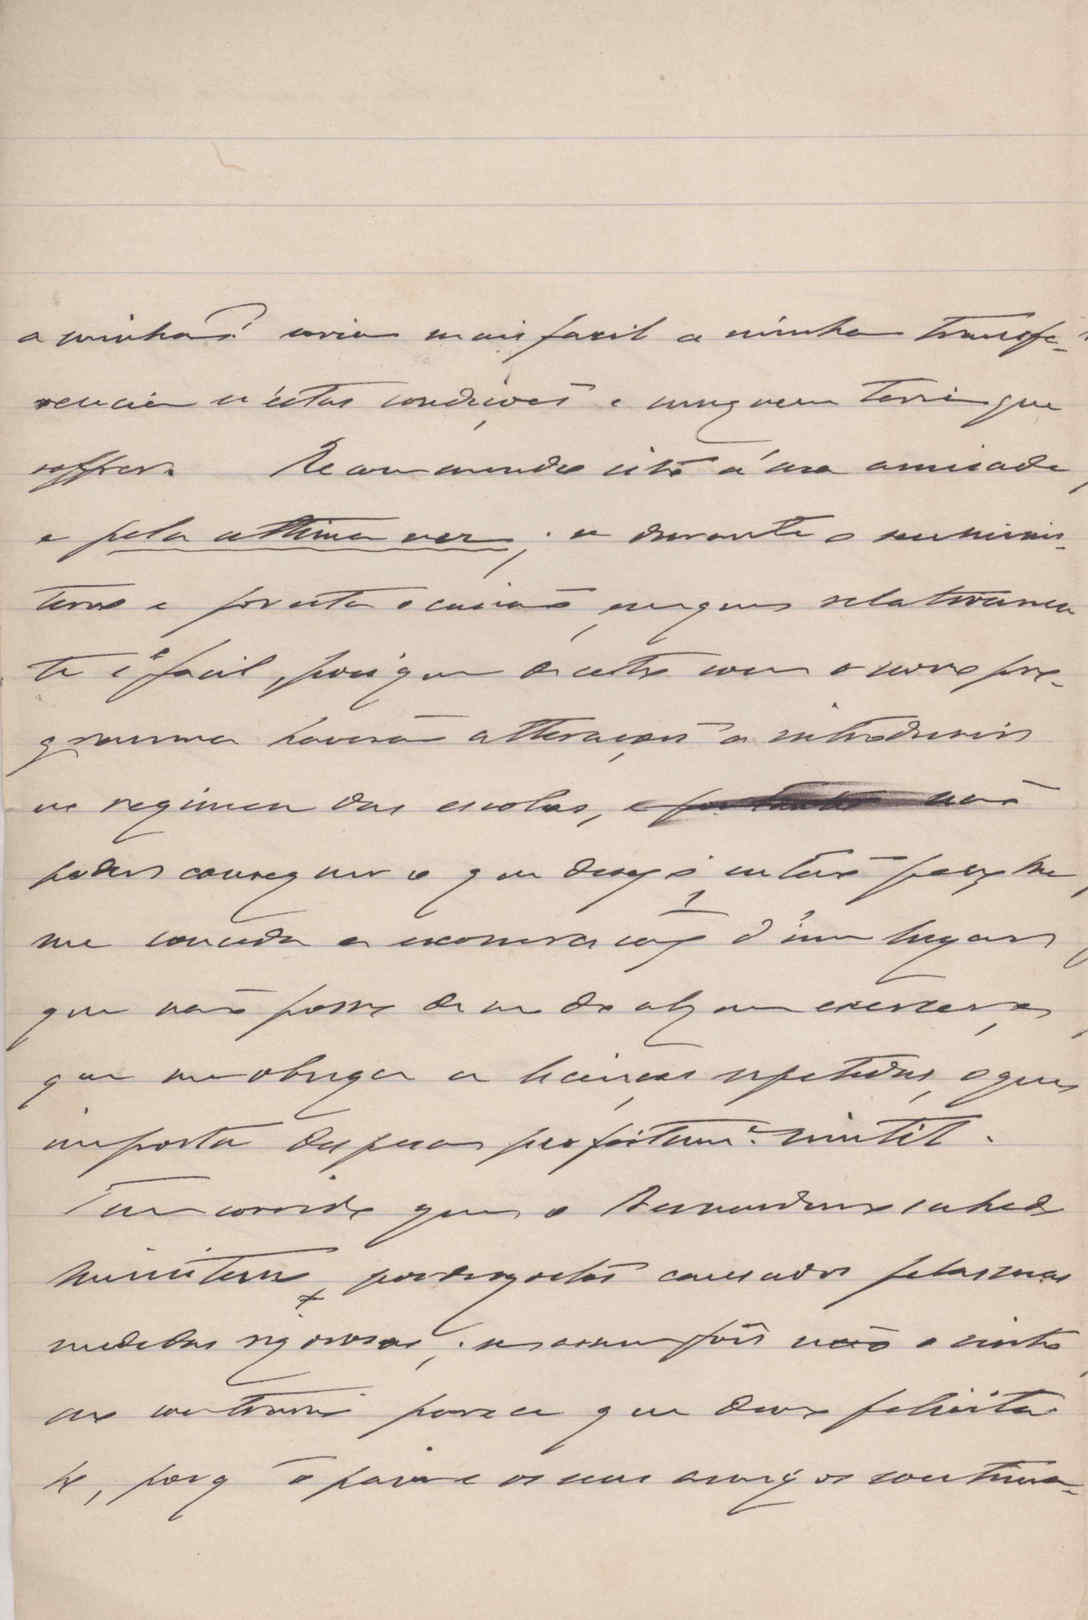 a minha? seria mais facil a minha transfe-
rencia n'estas condições e ninguem teria que
soffrer. Recommendo isto á sua amisade,
e pela ultima vez; se durante o seu minis-
terio e por esta occasião, em que relativamen
te é facil, pois que de certo com o novo pro-
gramma haverão alterações a introduzir
no regimen das escolas, não
poder conseguir o que desejo, então peço lhe,
me conceda a exoneração d'um lugar,
que não posso de modo algum exercer,
que me obriga a licenças repetidas, o que
importa despesa perfeitam.te inutil.
Tem corrido que o Bernardino sahe do
ministerio, por desgostos causados pelas suas
medidas rigorosas; se assim fôr não o sinto
ao contrario parece que devo felicita
lo, porq o paiz e os seus amigos continua-